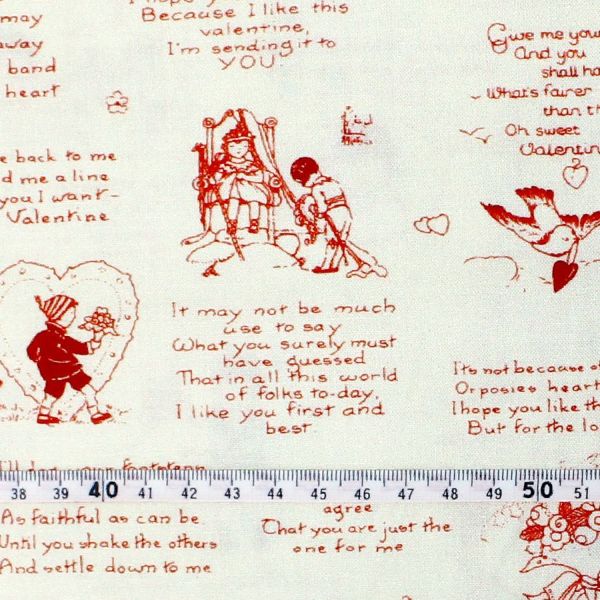 may
away
band
heart
Because I like this
valentine,
I'm sending it to
YOU.
Give me you
And you
shall ha
What's fairer
than th
Oh sweet
Valentin
e back to me
d me a line
you I want-
Valentine
It may not be much
use to say
What you surely must
have guessed
That in all this world
of folks to-day,
I like you first and
best.
Its not because of
Or posies heart
I hope you like th
But for the lo
38 39 40 41 42 43 44 45 46 47 48 49 50 51
As faithful as can be
Until you shake the others
And settle down to me
agree
That you are just the
one for me